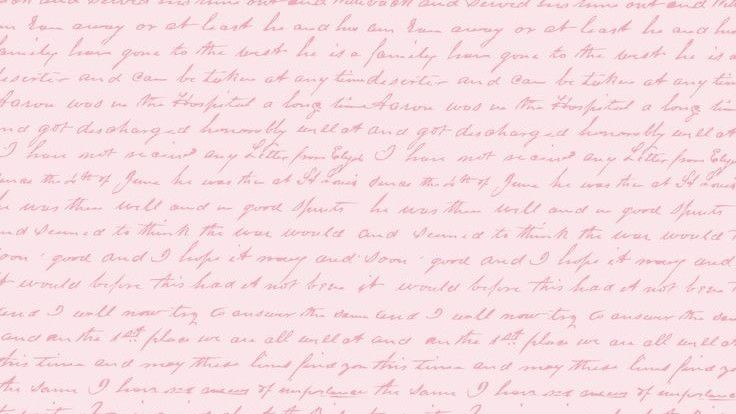 and served his time out and
Ran away or at least he and his am Ran away or at least he and his
family have gone to the west he is a family have gone to the west he is a
deserter and can be taken at any time deserter and can be taken at any time
Aaron was in the Hospital a long time Aaron was in the Hospital a long time
and got discharged honorably well at and got discharged honorably well at
I have not recieved any Letter from I have not recieved any Letter from
since the 4th of June he was then at St Louis since the 4th of June he was then at St Louis
he was then well and in good spirits he was then well and in good spirits
and seemed to think the war would and seemed to think the war would
soon good and I hope it may and soon good and I hope it may and
it would before this had it not been it would before this had it not been
and I will now try to answer the same and I will now try to answer the
and in the 1st place we are all well at and in the 1st place we are all well at
this time and may these lines find you this time and may these lines find you
the same I have no news of importance the same I have no news of importance